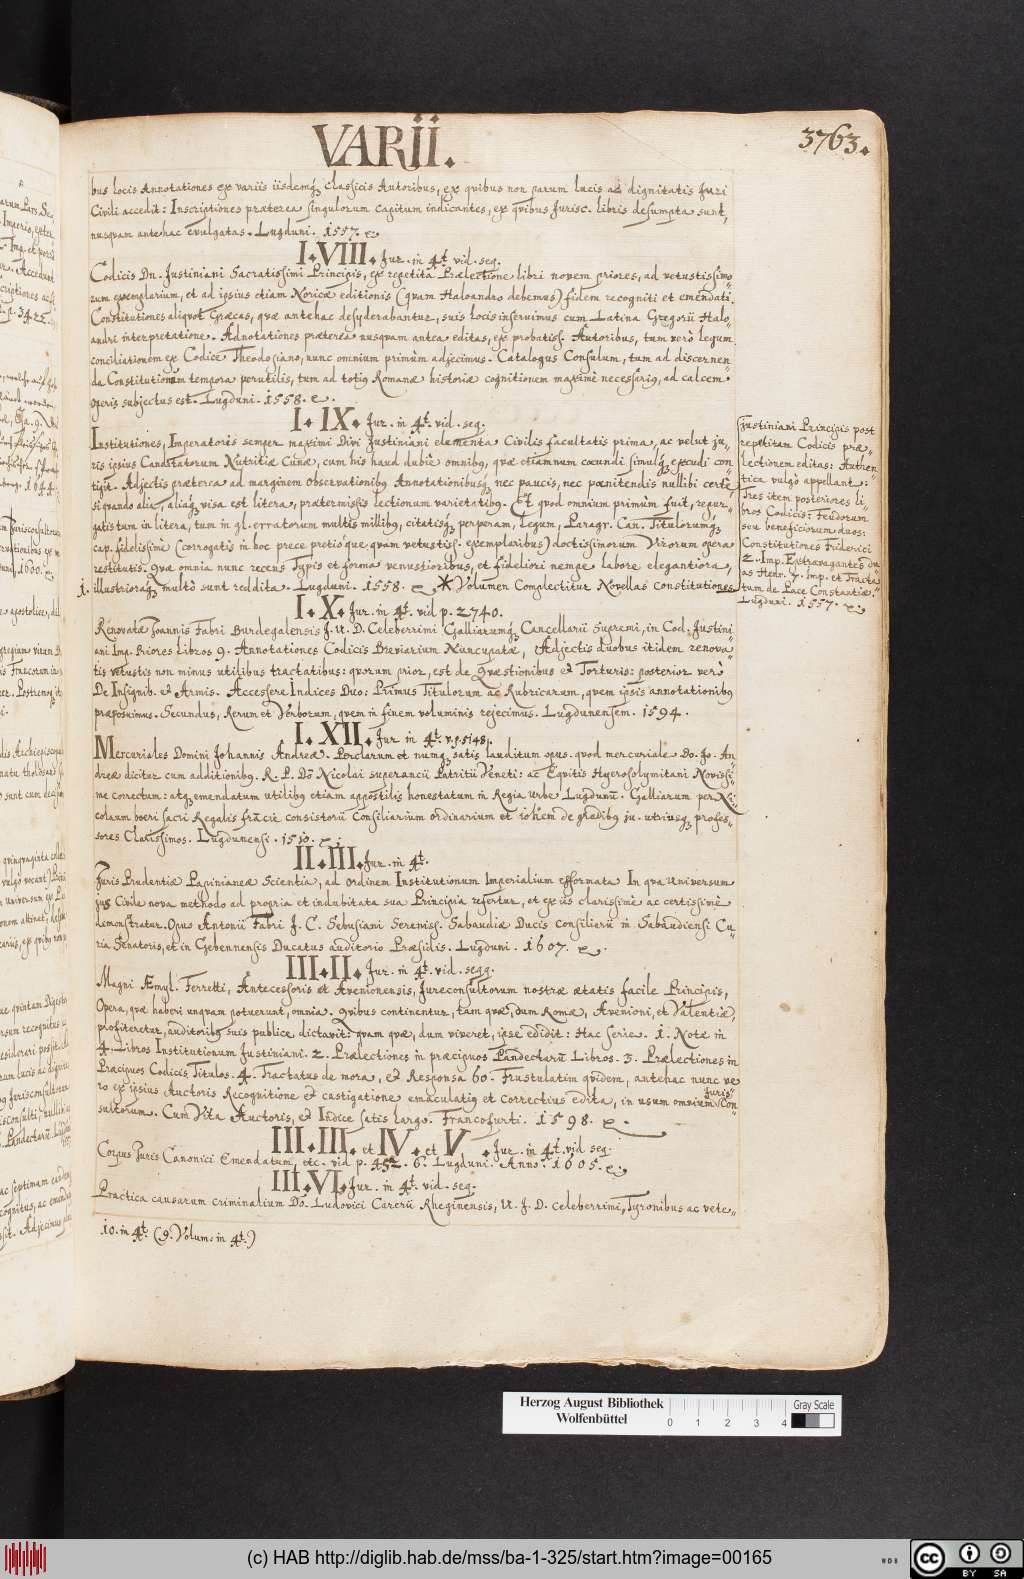 VARII.
3763.
bus locis Annotationes ex variis iisdemq́; Classicis Autoribus, ex quibus non parum lucis ad dignitatis Juri
Civili accedit: Inscriptiones præterea singulorum capitum indicantes, ex quibus Jurisc. libris desumpta sunt,
nusquam antehac evulgatas. Lugduni. 1557.
I. VIII. Jur. in 4t. vid. seq.
Codicis Dn. Justiniani Sacratissimi Principis, ex repetita Prælectione libri novem priores, ad vetustissimo-
rum exemplarium, et ad ipsius etiam Noricæ editionis (quam Haloandro debemus) fidem recogniti et emendati.
Constitutiones aliquot Græcas, quæ antehac desyderabantur, suis locis inseruimus cum Latina Gregorii Halo-
andri interpretatione. Adnotationes præterea nusquam antea editas, ex probatiss. Autoribus, tum verò legum
conciliationem ex Codice Theodosiano, nunc omnium primùm adjecimus. Catalogus Consulum, tum ad discernen-
da Constitutionum tempora perutilis, tum ad totig Romanæ historiæ cognitionem maximè necessariꝯ, ad calcem
operis subjectus est. Lugduni. 1558.
I. IX. Jur. in 4t. vid. seq.
Institutiones, Imperatoris semper maximi Divi Justiniani elementa Civilis facultatis prima, ac velut ju-
ris ipsius Canditatorum Nutritiæ Cunæ, cum his haud dubiè omnibꝯ, quæ etiamnum cocundi simulq́; excudi con-
tigit. Adjectis præterea ad marginem observationibꝯ Annotationibusq́; nec paucis, nec pœnitendis nullibi certè,
si quando aliàs, aliaq́; visa est litera, prætermissis lectionum varietatibꝯ. Et quod omnium primùm fuit, repur-
gatis tum in litera, tum in gl. erratorum multis millibꝯ, citatisq́; perperam, Legum, Paragr. Can. Titulorumq́;
cap. fidelissimè (corrogatis in hoc prece pretióque, quam vetustiss. exemplaribus) doctissimorum Virorum opera
restitutis. Quæ omnia nunc recens Typis et forma venustioribus, et fideliori nempe labore elegantiora,
1. illustrioraq́; multò sunt reddita. Lugduni. 1558. * Volumen Complectitur Novellas Constitutiones
Justiniani Principis post
repetitam Codicis præ-
lectionem editas: Authen-
tica vulgò appellant:
Tres item posteriores li-
bros Codicis: Feudorum
seu beneficiorum duos:
Constitutiones Friderici
2. Imp. Extravagantes du-
as Henr. 7. Imp. et Tracta-
tum de Pace Constantiæ.
Lugduni. 1557.
I. X. Jur. in 4t. vid. p. 2740.
Renovatæ Joannis Fabri Burdegalensis J. U. D. Celeberrimi Galliarumq́; Cancellarii Supremi, in Cod. Justini-
ani Imp. Priores libros 9. Annotationes Codicis Breviarium Nuncupatæ, Adjectis duobus itidem renova-
tis vetustis non minus utilibus tractatibus: quorum prior, est de Quæstionibus et Torturis: posterior verò
De Insignib. et Armis. Accessere Indices Duo: Primus Titulorum ac Rubricarum, quem ipsis annotationibꝯ
præposuimus. Secundus, Rerum et Verborum, quem in finem voluminis rejecimus. Lugdunensem. 1594.
I. XII. Jur. in 4t. v. p. 5148.
Mercuriales Domini Johannis Andreæ. Perclarum et numq́; satis lauditum opus. quod mercuriale Do. Jo. An-
dreæ dicitur cum additionibꝯ. R. P. Dn̄ Nicolai superancii Patritii Veneti: ac Equitis Hyerosolymitani Novissi-
me correctum: atq́; emendatum utilibꝯ etiam appostilis honestatum in Regia Urbe Lugdunū. Galliarum per Ni-
colaum boeri sacri Regalis frācie consistorii Consiliarium ordinarium et
sores Clarissimos. Lugdunensi. 1510.
II. III. Jur. in 4t.
Juris Prudentiæ Papinianeæ Scientia, ad ordinem Institutionum Imperialium efformata In qua Universum
jus Civile nova methodo ad propria et indubitata sua Principia refertur, et ex iis clarissimè ac certissimè
demonstratur. Opus Antonii Fabri J. C. Sebusiani Sereniss. Sabaudiæ Ducis consiliarii in Sabaudiensi Cu-
ria Senatoris, et in Gebennensis Ducatus auditorio Præsidis. Lugduni. 1607.
III. II. Jur. in 4t. vid. seqq.
Magni Æmyl. Ferretti, Antecessoris et Avenionensis, Jureconsultorum nostræ ætatis facile Principis,
Opera, quæ haberi unquam potuerunt, omnia. Quibus continentur, tam quæ, dum Romæ, Avenioni, et Valentiæ,
profiteretur, auditoribꝯ suis publice dictavit: quam quæ, dum viveret, ipse edidit: Hac serie. 1. Notæ in
4. Libros Institutionum Justiniani. 2. Prælectiones in præcipuos Pandectarū Libros. 3. Prælectiones in
Præcipuos Codicis Titulos. 4. Tractatus de mora, et Responsa 60. Frustulatim quidem, antehac nunc ve-
ro ex ipsius Auctoris Recognitione et castigatione emaculatiꝯ et correctius edita, in usum omnium Juris-Con-
sultorum. Cum Vita Auctoris, et Indice satis largo. Francofurti. 1598.
III. III. et IV. et V. Jur. in 4t. vid. seq.
Corpus Juris Canonici Emendatum, etc. vid p. 452. 6. Lugduni. Anno. 1605.
III. VI. Jur. in 4t. vid. seq.
Practica causarum criminalium Dō. Ludovici Carerii Rheginensis, U. J. D. celeberrimi, Tyronibus ac vete-
10. in 4t. (9. Volum: in 4t.)
Herzog August Bibliothek
Wolfenbüttel
0 1 2 3 4
Gray Scale
(c) HAB http://diglib.hab.de/mss/ba-1-325/start.htm?image=00165
WDB
cc BY SA